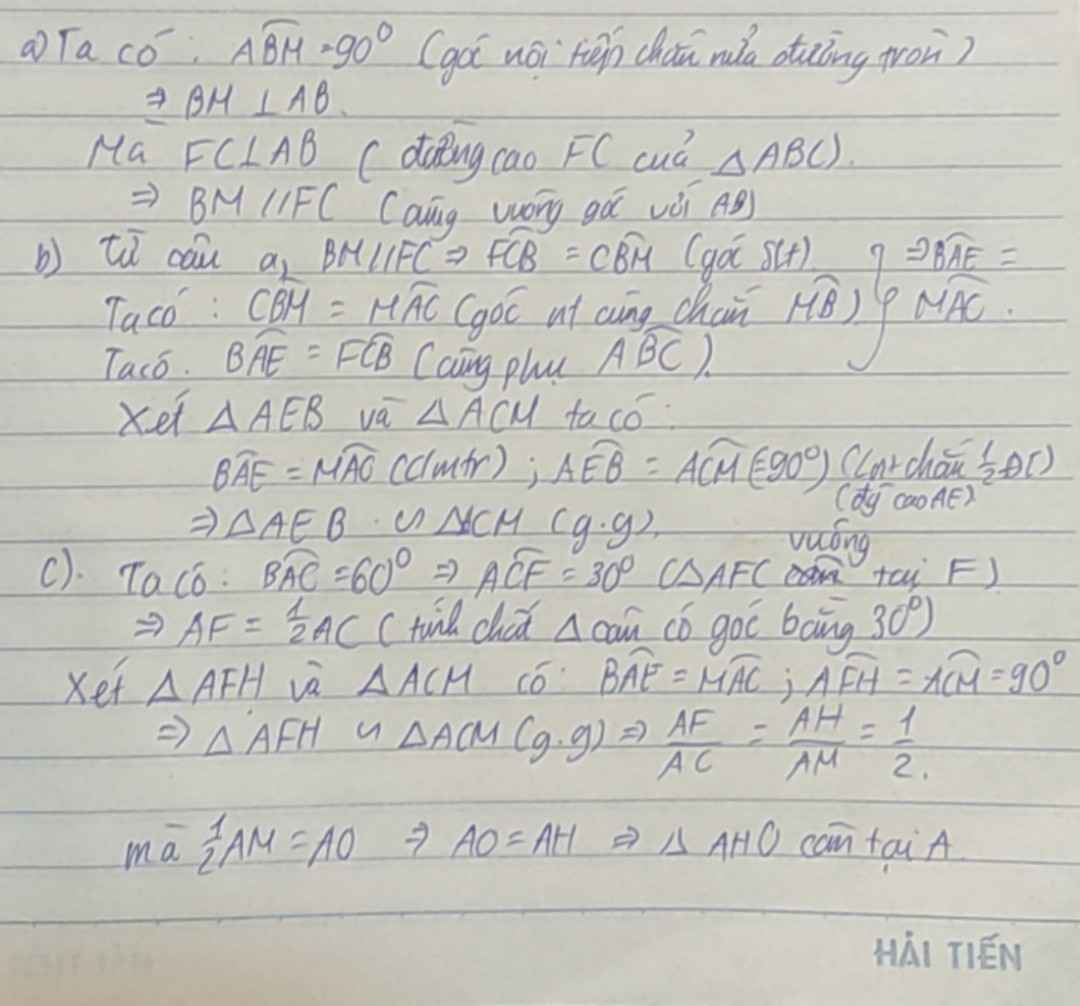 a) Ta có : ABM = 90° (góc nội tiếp chắn nửa đường tròn)
⇒ BM ⊥ AB.
Mà FC ⊥ AB (đường cao FC của △ABC).
⇒ BM // FC (cùng vuông góc với AB)
b) Từ câu a, BM // FC ⇒ FCB = CBM (góc slt) } ⇒ BAE =
Ta có : CBM = MAC (góc nt cùng chắn MB) } MAC.
Ta có. BAE = FCB (cùng phụ ABC).
Xét △AEB và △ACM ta có :
BAE = MAC (cmtr) ; AEB = ACM (=90°) (Lnt chắn ½ĐT)
(đg cao AE)
⇒ △AEB ∽ △ACM (g.g).
vuông
c). Ta có : BAC = 60° ⇒ ACF = 30° (△AFC cân tại F)
⇒ AF = ½AC (tính chất △ cân có góc bằng 30°)
Xét △AFH và △ACM có : BAE = MAC ; AFH = ACM = 90°
⇒ △AFH ∽ △ACM (g.g) ⇒ AF/AC = AH/AM = 1/2.
mà ½AM = AO ⇒ AO = AH ⇒ △AHO cân tại A.
HẢI TIẾN